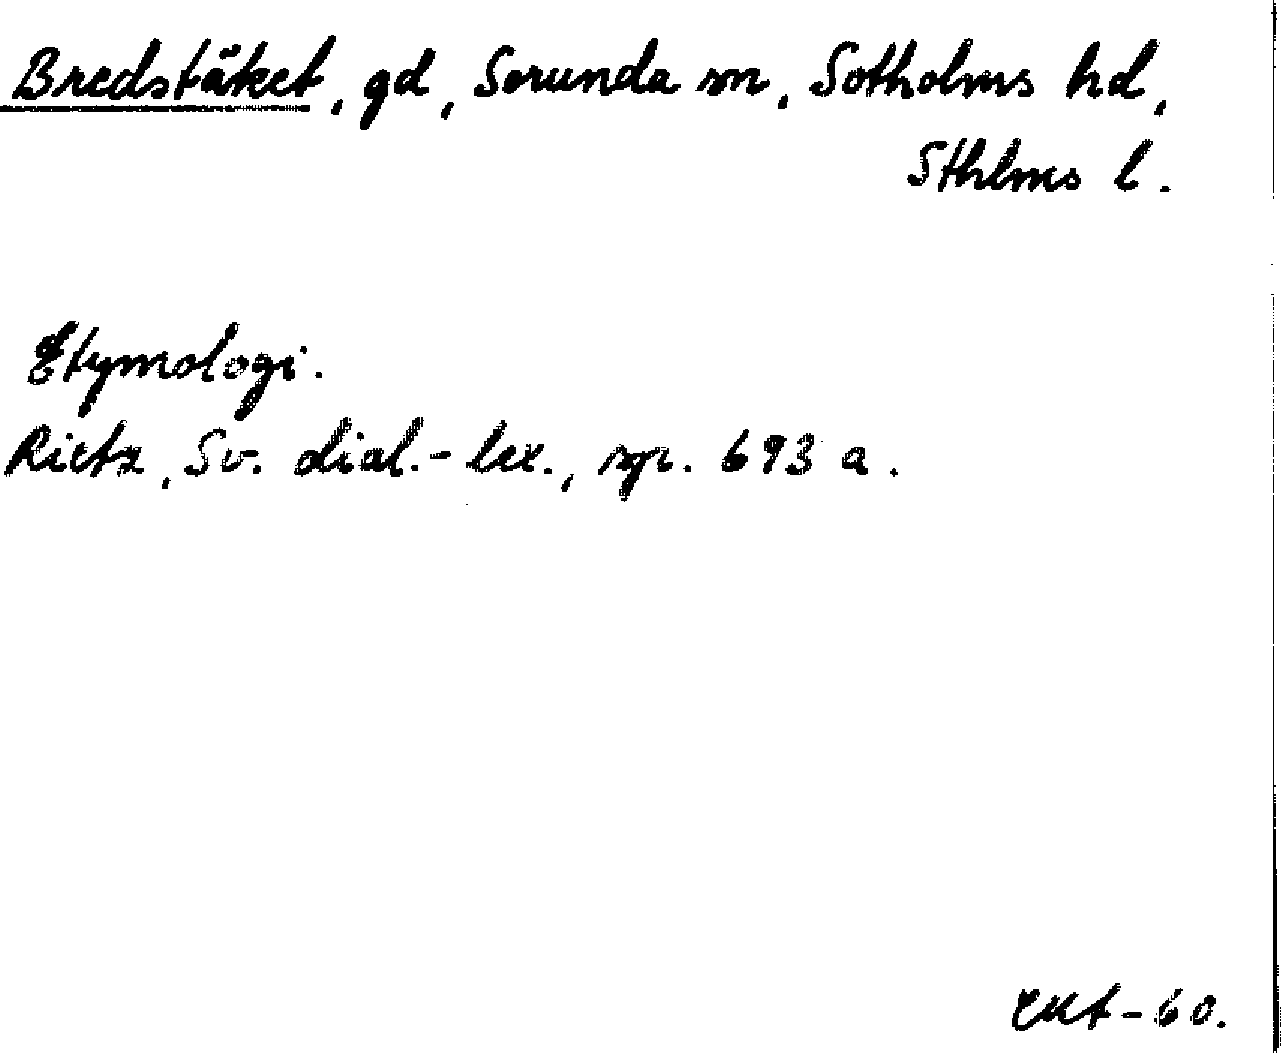 Bredstäket, gd, Sorunda sn, Sotholms hd,
Sthlms l.
Etymologi.
Rietz, Sv. dial.-lex., sp. 693 a.
-60.